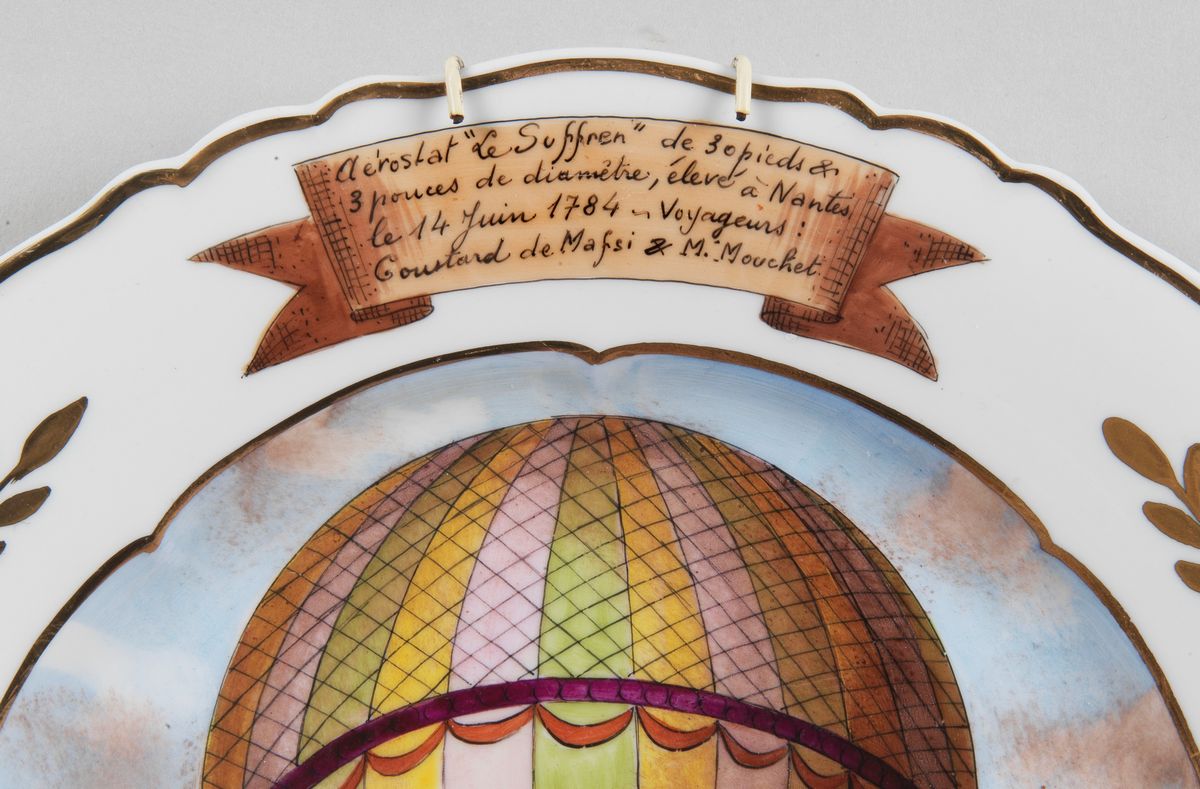 Aérostat "Le Suffren" de 30 pieds &
3 pouces de diamêtre, élevé à Nantes,
le 14 Juin 1784 ~ Voyageurs :
Coustard de Mafsi & M. Mouchet.